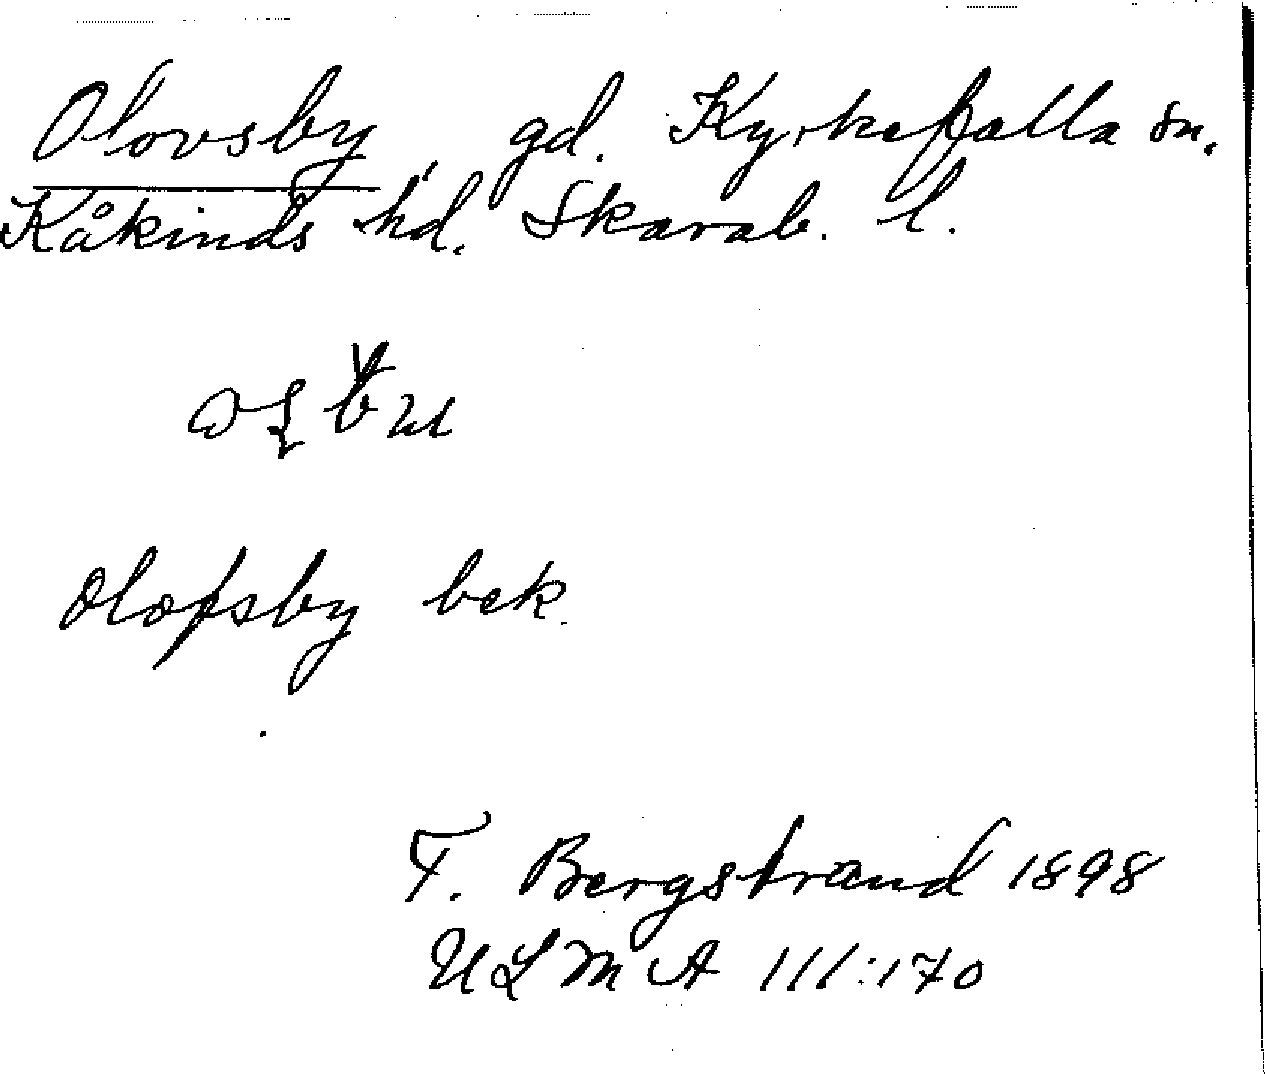 Olovsby, gd. Kyrkefalla sn.
Kåkinds hd. Skarab. l.
Olofsby bek.
F. Bergstrand 1898
ULMA 111:170